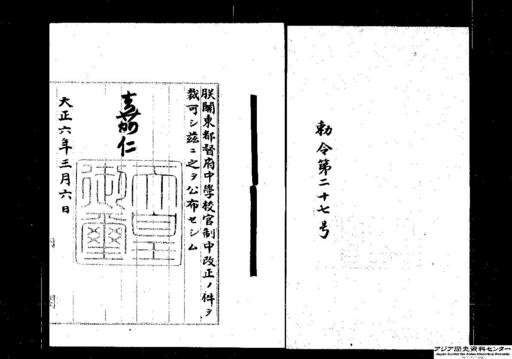 勅令第二十七号
朕關東都督府中學校官制中改正ノ件ヲ
裁可シ茲ニ之ヲ公布セシム
嘉仁
天皇御璽
大正六年三月六日
アジア歴史資料センター
Japan Center for Asian Historical Records